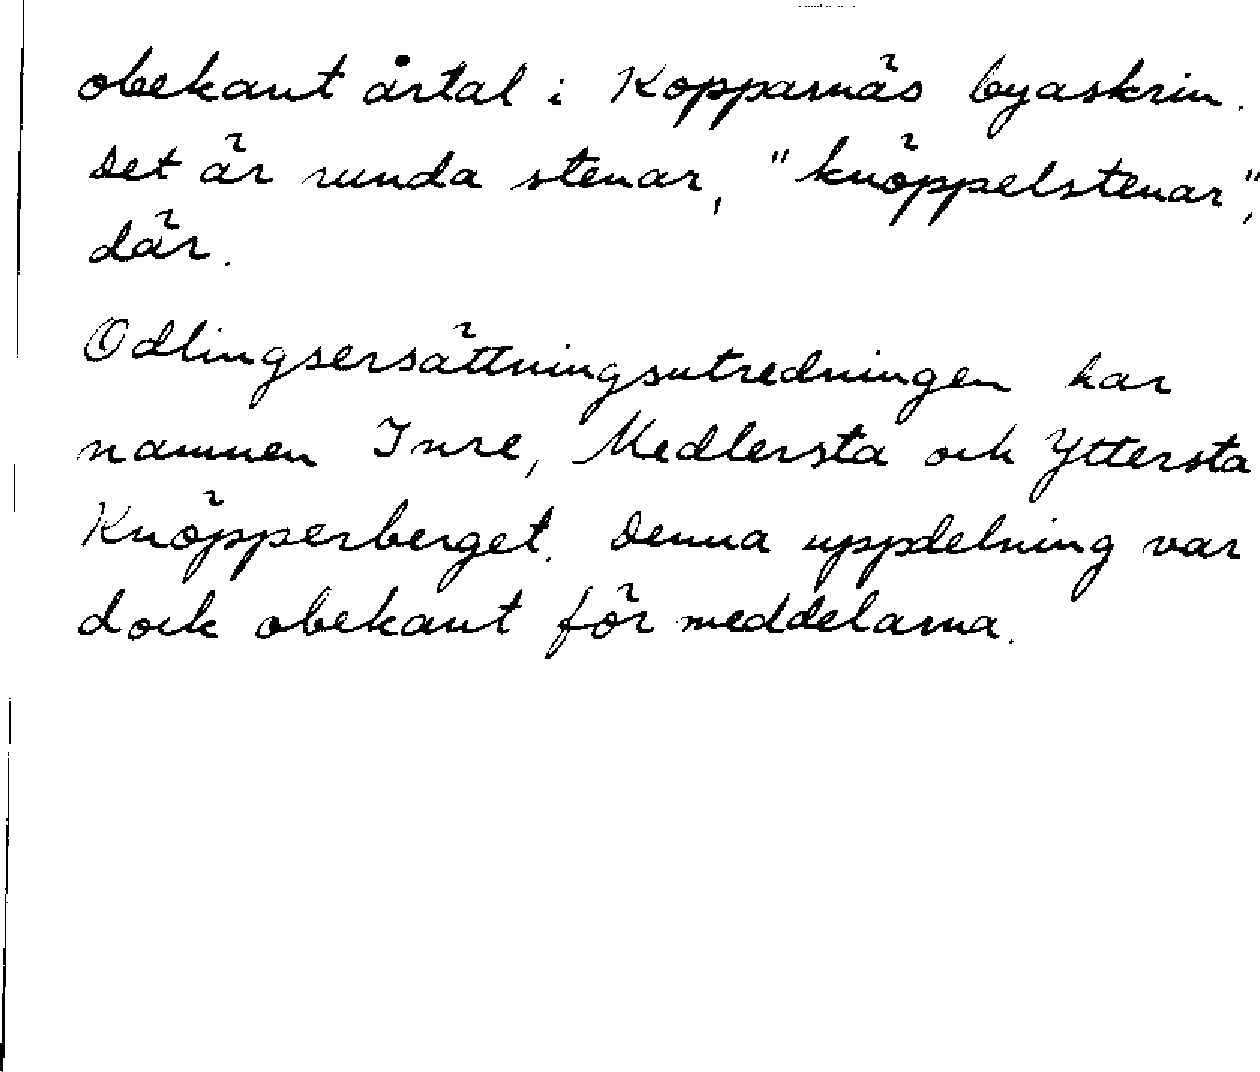 obekant årtal i Kopparnäs byaskrin.
Det är runda stenar, "knöppelstenar",
där.
Odlingsersättningsutredningen har
namnen Inre, Medlersta och Yttersta
Knöpperberget. Denna uppdelning var
dock obekant för meddelarna.